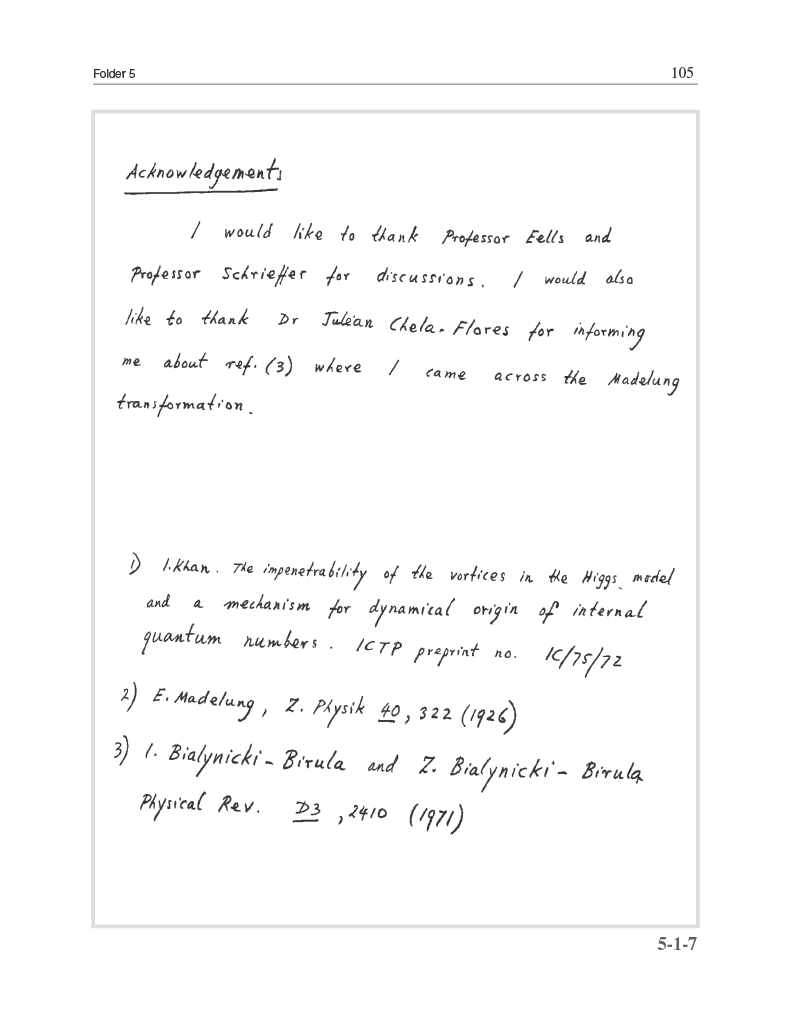 Folder 5 105
Acknowledgements
I would like to thank Professor Eells and
Professor Schrieffer for discussions. I would also
like to thank Dr Juleàn Chela-Flores for informing
me about ref. (3) where I came across the Madelung
transformation.
1) I. Khan. The impenetrability of the vortices in the Higgs model
and a mechanism for dynamical origin of internal
quantum numbers. ICTP preprint no. IC/75/72
2) E. Madelung, Z. Physik 40, 322 (1926)
3) I. Bialynicki-Birula and Z. Bialynicki-Birula
Physical Rev. D3, 2410 (1971)
5-1-7